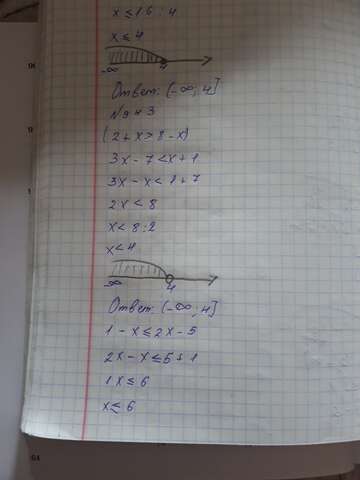 x ≤ 16 : 4
x ≤ 4
-∞ 4
Ответ: (-∞; 4]
(2 + x > 8 - x)
3x - 7 < x + 1
3x - x < 1 + 7
2x < 8
x < 8 : 2
x < 4
-∞ 4
Ответ: (-∞; 4]
1 - x ≤ 2x - 5
2x - x ≤ 5 + 1
1x ≤ 6
x ≤ 6